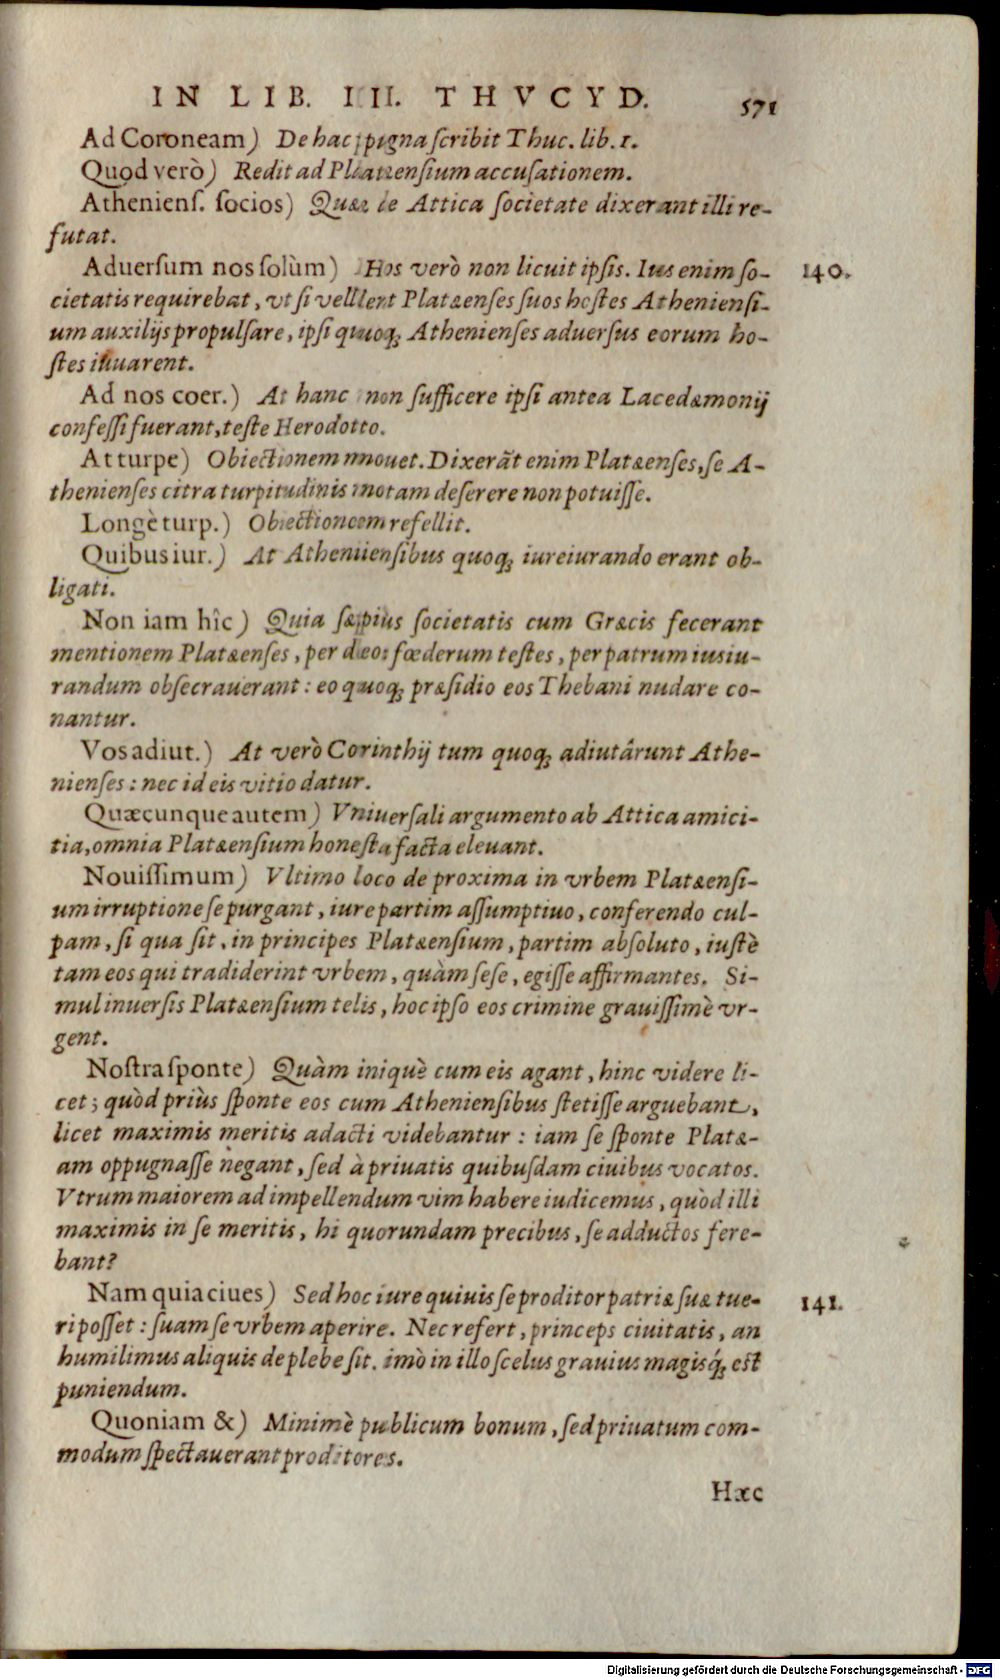 IN LIB. III. THVCYD. 571
Ad Coroneam) De hac pugna ſcribit Thuc. lib. 1.
Quod verò) Redit ad Platæenſium accuſationem.
Athenienſ. ſocios) Quæ de Attica ſocietate dixerant illi re-
futat.
Aduerſum nos ſolùm) Hos verò non licuit ipſis. Ius enim ſo- 140.
cietatis requirebat, vt ſi vellent Platæenſes ſuos hoſtes Athenienſi-
um auxilijs propulſare, ipſi quoq; Athenienſes aduerſus eorum ho-
ſtes iuuarent.
Ad nos coer.) At hanc non ſufficere ipſi antea Lacedæmonij
confeſſi fuerant, teſte Herodotto.
At turpe) Obiectionem mouet. Dixerãt enim Platæenſes, ſe A-
thenienſes citra turpitudinis notam deſerere non potuiſſe.
Longè turp.) Obiectionem refellit.
Quibus iur.) At Athenienſibus quoq; iureiurando erant ob-
ligati.
Non iam hîc) Quia ſæpius ſocietatis cum Græcis fecerant
mentionem Platæenſes, per deos fœderum teſtes, per patrum iusiu-
randum obſecrauerant: eo quoq; præſidio eos Thebani nudare co-
nantur.
Vos adiut.) At verò Corinthij tum quoq; adiutârunt Athe-
nienſes: nec id eis vitio datur.
Quæcunque autem) Vniuerſali argumento ab Attica amici-
tia, omnia Platæenſium honeſta facta eleuant.
Nouiſſimum) Vltimo loco de proxima in vrbem Platæenſi-
um irruptione ſe purgant, iure partim aſſumptiuo, conferendo cul-
pam, ſi qua ſit, in principes Platæenſium, partim abſoluto, iuſtè
tam eos qui tradiderint vrbem, quàm ſeſe, egiſſe affirmantes. Si-
mul inuerſis Platæenſium telis, hoc ipſo eos crimine grauiſſimè vr-
gent.
Noſtra ſponte) Quàm iniquè cum eis agant, hinc videre li-
cet; quòd priùs ſponte eos cum Athenienſibus ſtetiſſe arguebant,
licet maximis meritis adacti videbantur: iam ſe ſponte Platæ-
am oppugnaſſe negant, ſed à priuatis quibuſdam ciuibus vocatos.
Vtrum maiorem ad impellendum vim habere iudicemus, quòd illi
maximis in ſe meritis, hi quorundam precibus, ſe adductos fere-
bant?
Nam quia ciues) Sed hoc iure quiuis ſe proditor patriæ ſuæ tue- 141.
ri poſſet: ſuam ſe vrbem aperire. Nec refert, princeps ciuitatis, an
humilimus aliquis de plebe ſit. imò in illo ſcelus grauius magisq́; eſt
puniendum.
Quoniam &) Minimè publicum bonum, ſed priuatum com-
modum ſpectauerant proditores.
Hæc
Digitalisierung gefördert durch die Deutsche Forschungsgemeinschaft - DFG